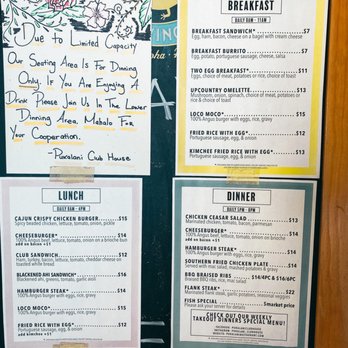 Due to Limited Capacity
Our Seating Area Is For Dinning
Only. If You Are Enjoying A
Drink Please Join Us In The Lower
Dinning Area. Mahalo For
Your Cooperation.
- Pukalani Club House
BREAKFAST
DAILY 8AM - 11AM
BREAKFAST SANDWICH* $7
Egg, ham, bacon, cheese on a bagel with cream cheese
BREAKFAST BURRITO $7
Egg, potato, portuguese sausage, cheese, salsa
TWO EGG BREAKFAST* $11
Eggs, choice of meat, potatoes or rice, choice of toast
UPCOUNTRY OMELETTE $13
Mushroom, onion, spinach, choice of meat, potatoes
or rice & choice of toast
LOCO MOCO* $15
100% Angus burger with eggs, rice, gravy
FRIED RICE WITH EGG* $12
Portuguese sausage, egg, & onion
KIMCHEE FRIED RICE WITH EGG* $13
Portuguese sausage, egg, & onion
LUNCH
DAILY 8AM - 4PM
CAJUN CRISPY CHICKEN BURGER $15
Spicy breaded chicken, lettuce, tomato, onion, pickle
CHEESEBURGER* $14
100% Angus beef, lettuce, tomato, onion on brioche bun
add on bacon +$1
CLUB SANDWICH $12
Turkey, bacon, ham, lettuce, tomato, cheddar cheese on
toasted white bread
BLACKENED AHI SANDWICH $16
Blackened ahi, greens, tomato, garlic aioli
HAMBURGER STEAK* $14
100% Angus burger with eggs, rice, gravy
LOCO MOCO* $15
100% Angus burger with eggs, rice, gravy
FRIED RICE WITH EGG* $12
Portuguese sausage, egg, & onion
add kimchee +$1
DINNER
DAILY 5PM - 8PM
CHICKEN CEASAR SALAD $13
Marinated chicken, tomato, bacon, parmesan
CHEESEBURGER* $14
100% Angus beef, lettuce, tomato, onion on a brioche
add on bacon +$1
HAMBURGER STEAK* $14
100% Angus burger with eggs, rice, gravy
SOUTHERN FRIED CHICKEN PLATE $14
Served with mac salad, mashed potatoes & gravy
BBQ BRAISED RIBS $14/4PC & $16/6PC
Braised BBQ ribs, mac salad
FLANK STEAK $18
Marinated flank steak, garlic potatoes, seasonal veggies
FISH SPECIAL $market price
Please ask your server for details
CHECK OUT OUR WEEKLY
TAKEOUT DINNERS SPECIAL MENU!